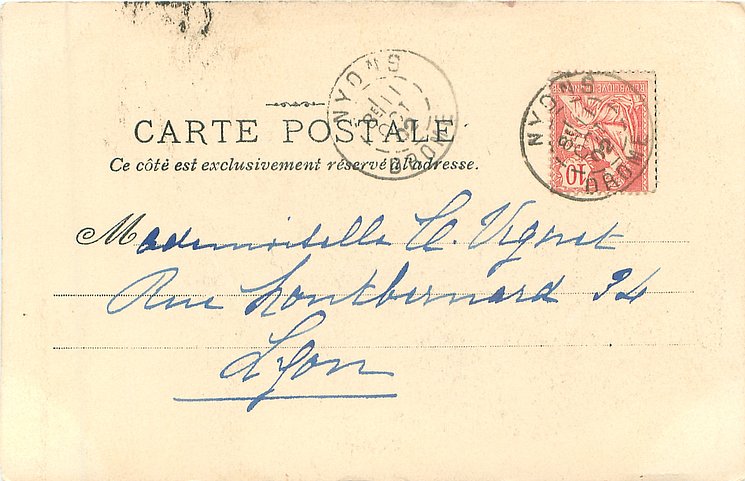 CARTE POSTALE
Ce côté est exclusivement réservé à l'adresse.
NYONS
11
OCT
02
DROME
NYONS
11
02
DROME
10
Mademoiselle
Rue 34
Lyon